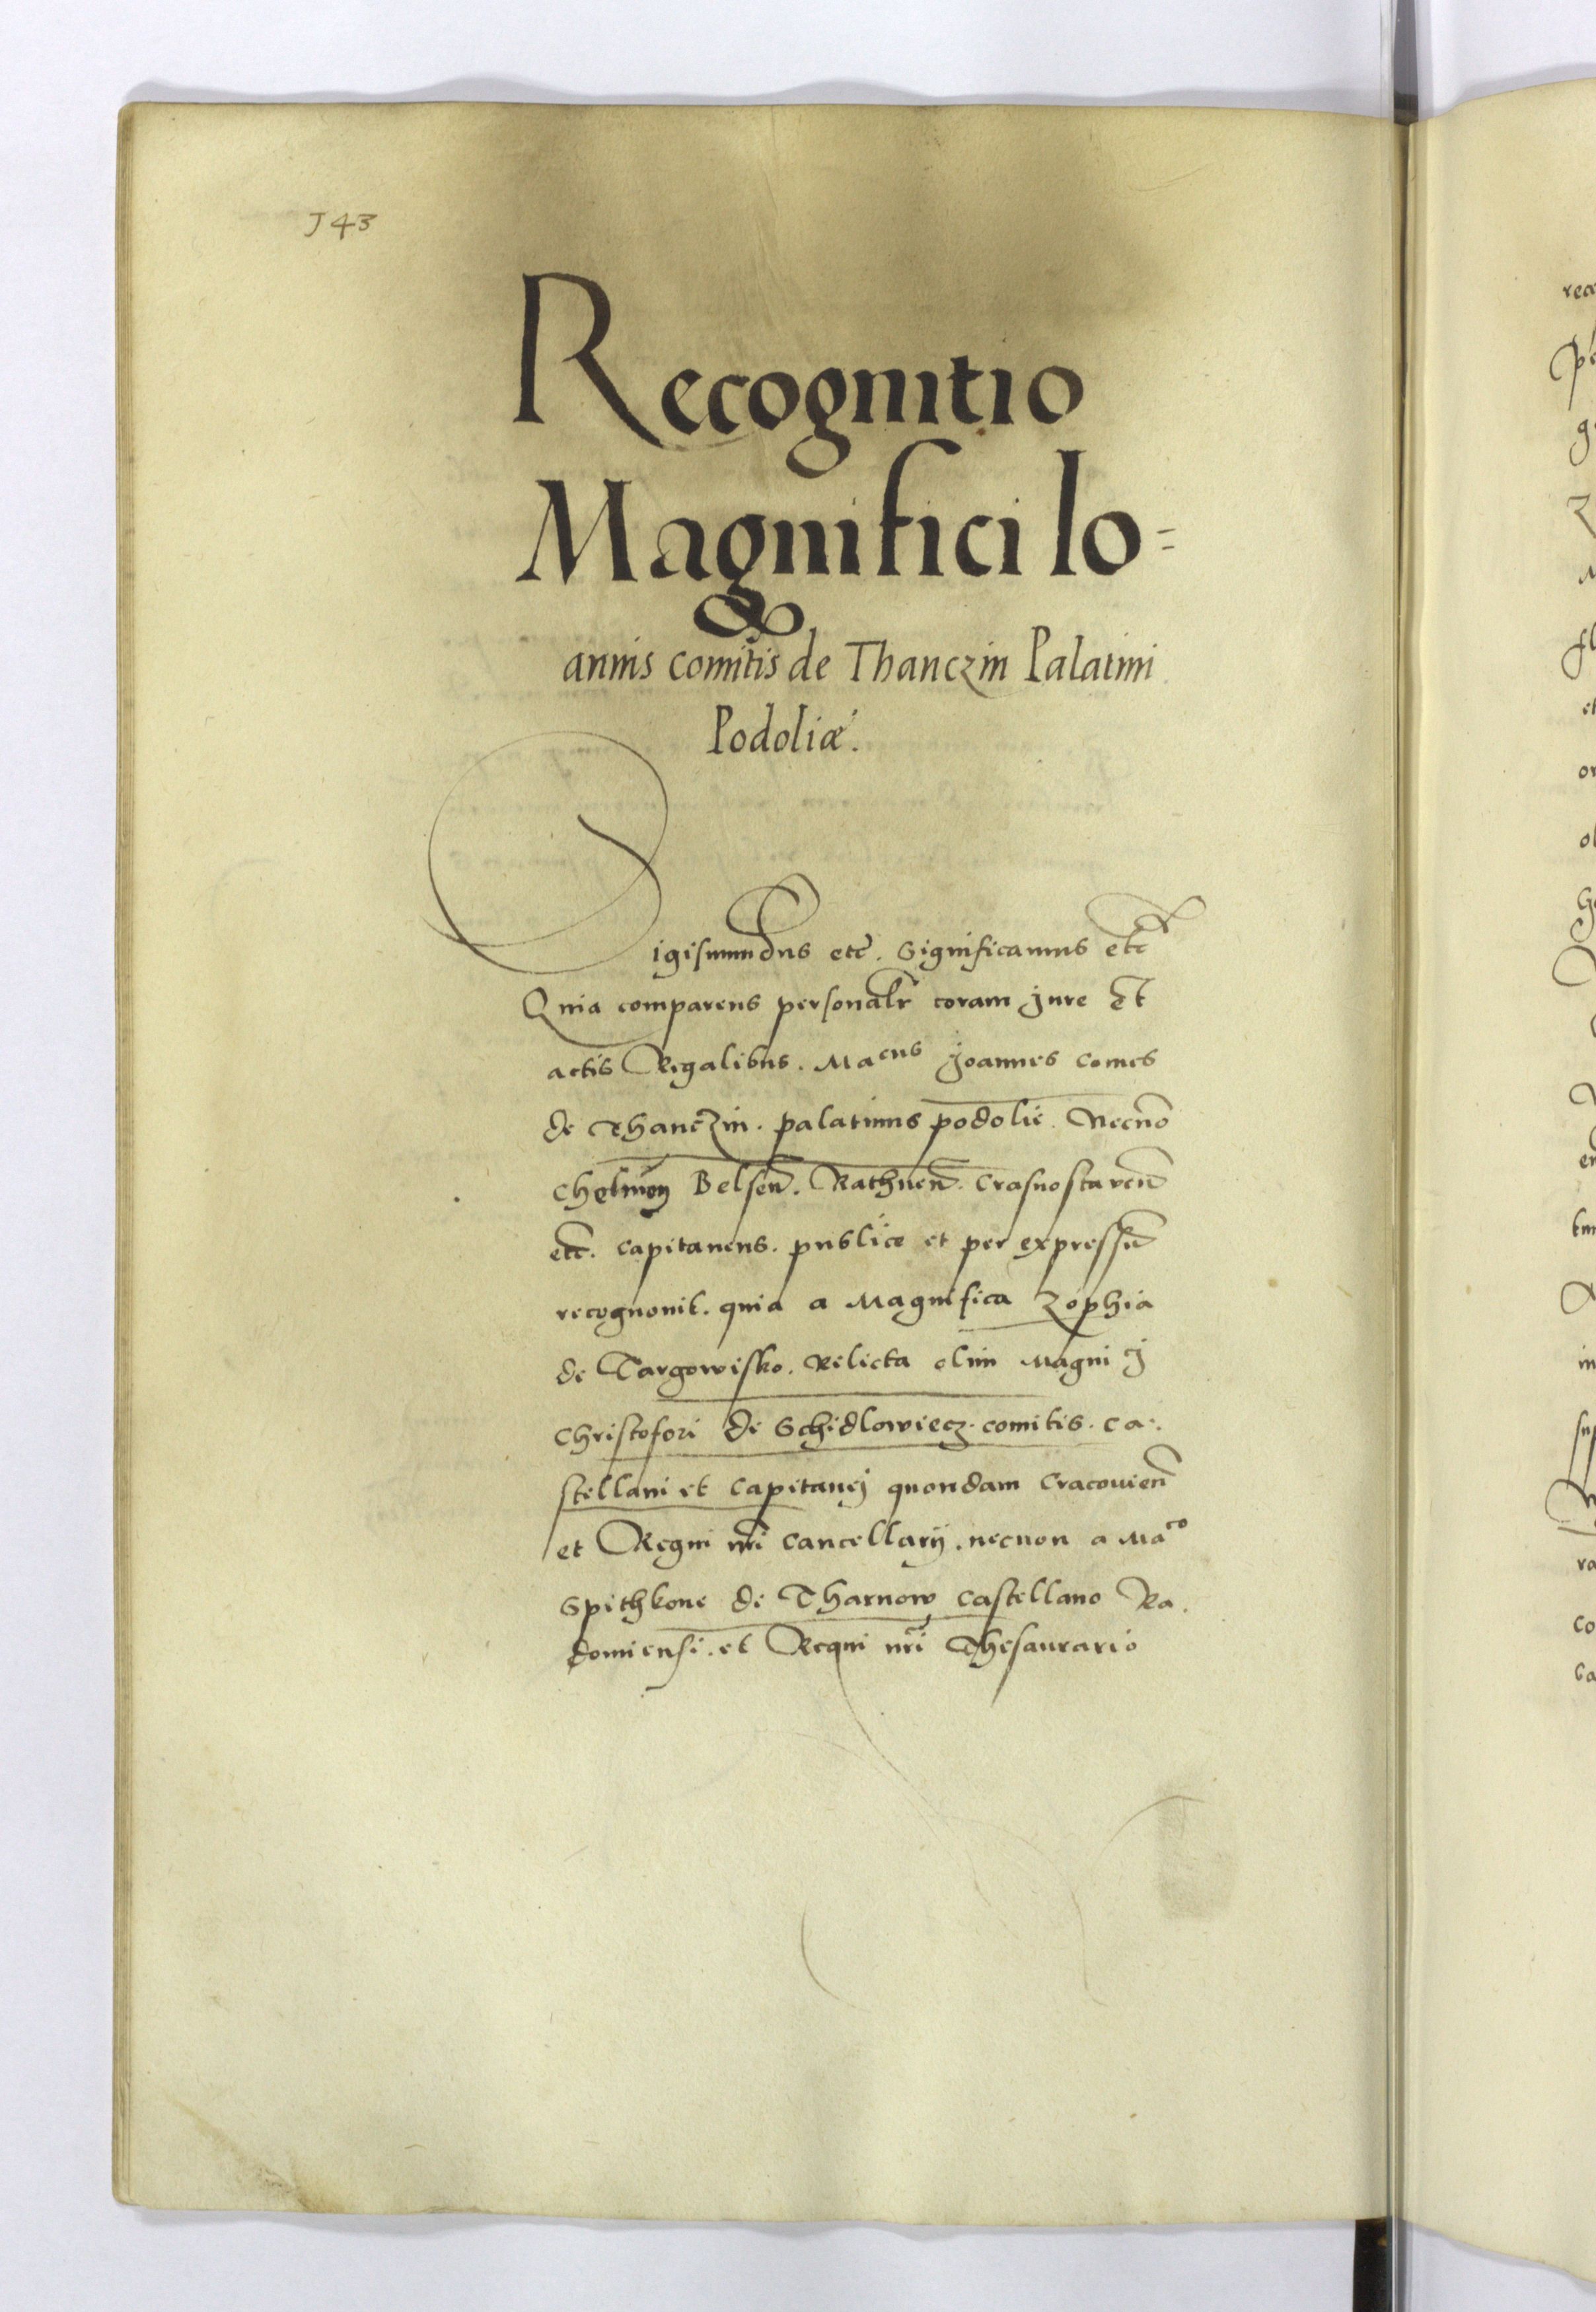 J43
Recognitio
Magnifici Io=
annis comitis de Thanczin Palatini
Podoliæ.
Sigismundus etc. Significamus etc
Quia comparens personalr coram jure Et
actis Regalibus. Macus Joannes comes
de Thanczin. palatinus podolie. Necno
Chelmen Belsen. Rathnen. Crasnostaven
etc. Capitaneus. publice et per expressu
recognovit. quia a Magnifica Zophia
de Targowisko. Relicta olim Magni j
Christofori de Schidlowiecz. comitis. ca:
stellani et Capitanej quondam Cracovien
et Regni nri Cancellarij. necnon a Maco
Spithkone de Tharnow castellano Ra
domiensi. et Regni nri Thesaurario